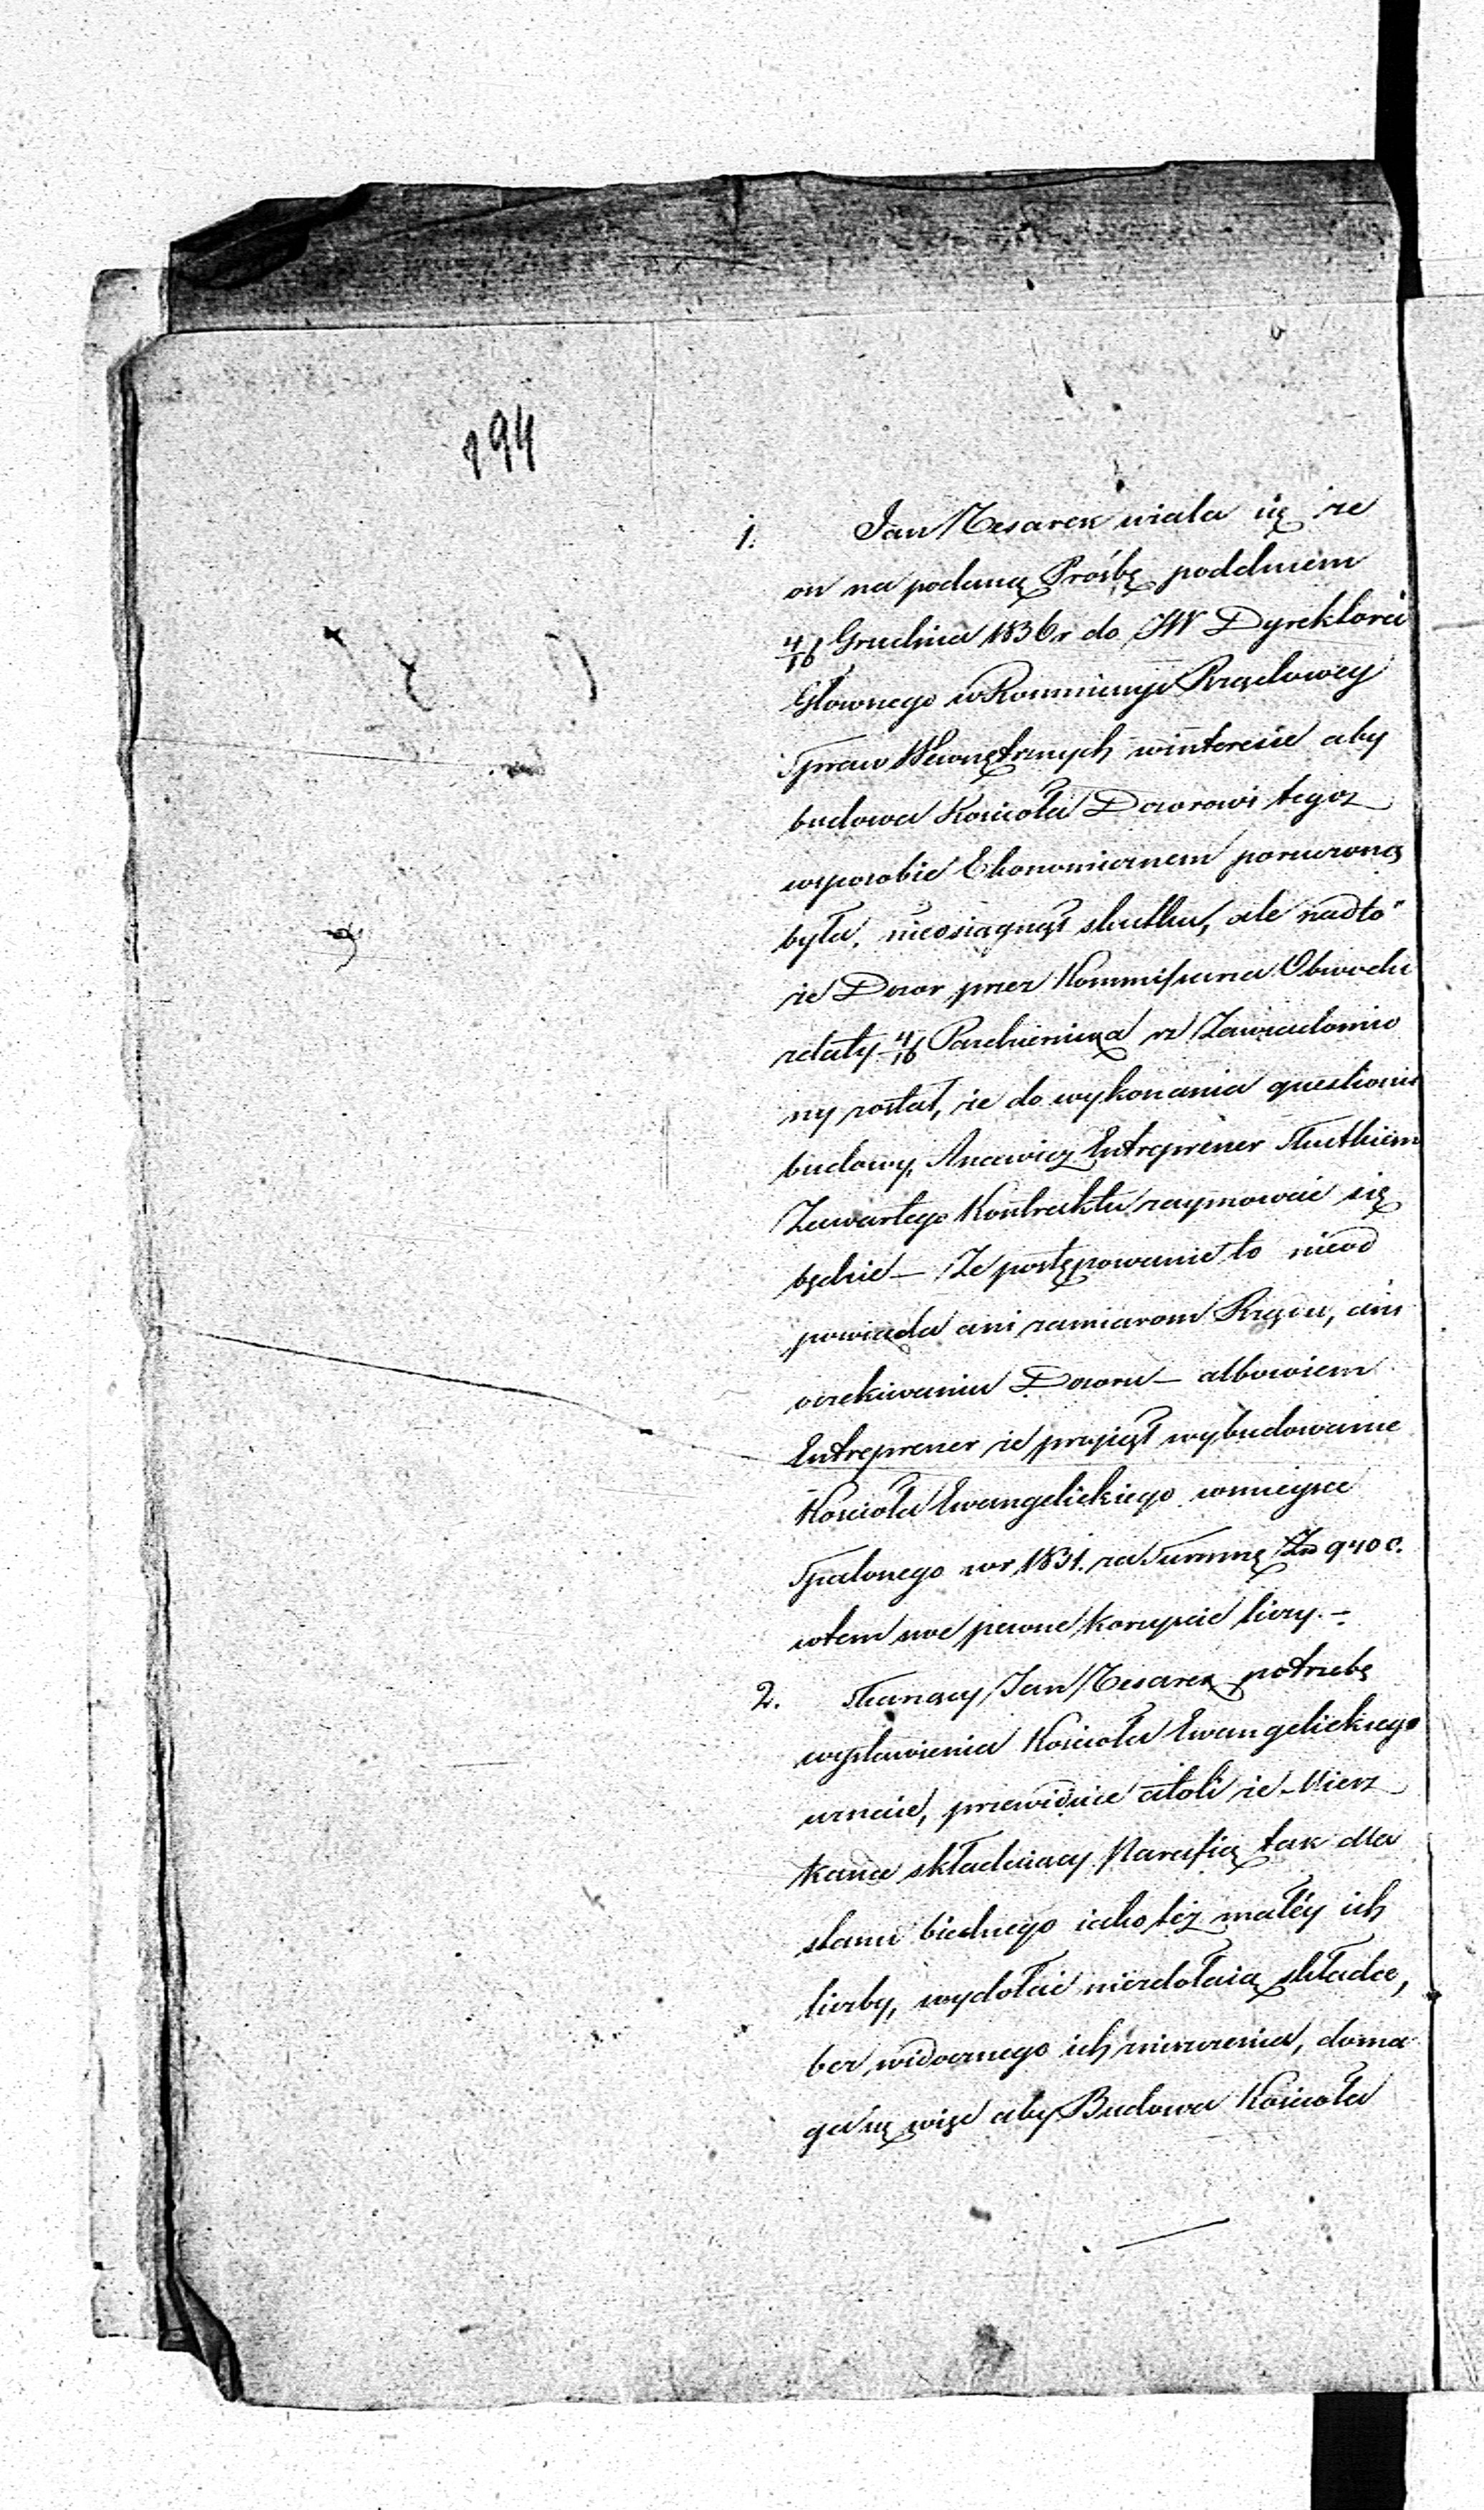 194
1. Jan Mesarek wiala się że
on na podaną Prośbę poddniem
4/16 Grudnia 1836 r do JW Dyrektora
Głownego w Kommissyi Rządowey
Spraw Wewnętrznych winteresie aby
budowa Kościoła Dozorowi tegoż
wsposobie Ekonomicznem poruczoną
była, nieosiągnął skutku, ale nadto
że Dozor przez Kommissarza Obwodu
zdaty 4/16 Pazdziernika rz Zawiadomio
ny został, że do wykonania questionis
budowy, Entreprener Skutkiem
Zawartego Kontraktu zaymować się
będzie – Że postępowanie to nieod
powiada ani zamiarom Rządu, ani
oczekiwaniu Dozoru – albowiem
Entreprener że przyjął wybudowanie
Kościoła Ewangelickiego wmieysce
Spalonego wr 1831. za Summę Zł 940
wtem swe pewne korzyście liczy. –
2. Skarzący Jan Mesarek potrzebę
wystawienia Kościoła Ewangelickiego
uznaie, przewiduie atoli że Miesz
kańce składaiący Parafią tak dla
stanu biednego iako też małéy ich
liczby, wydołać niezdołaią składce,
bez widocznego ich zniszczenia, doma
ga się więc aby Budowa Kościoła